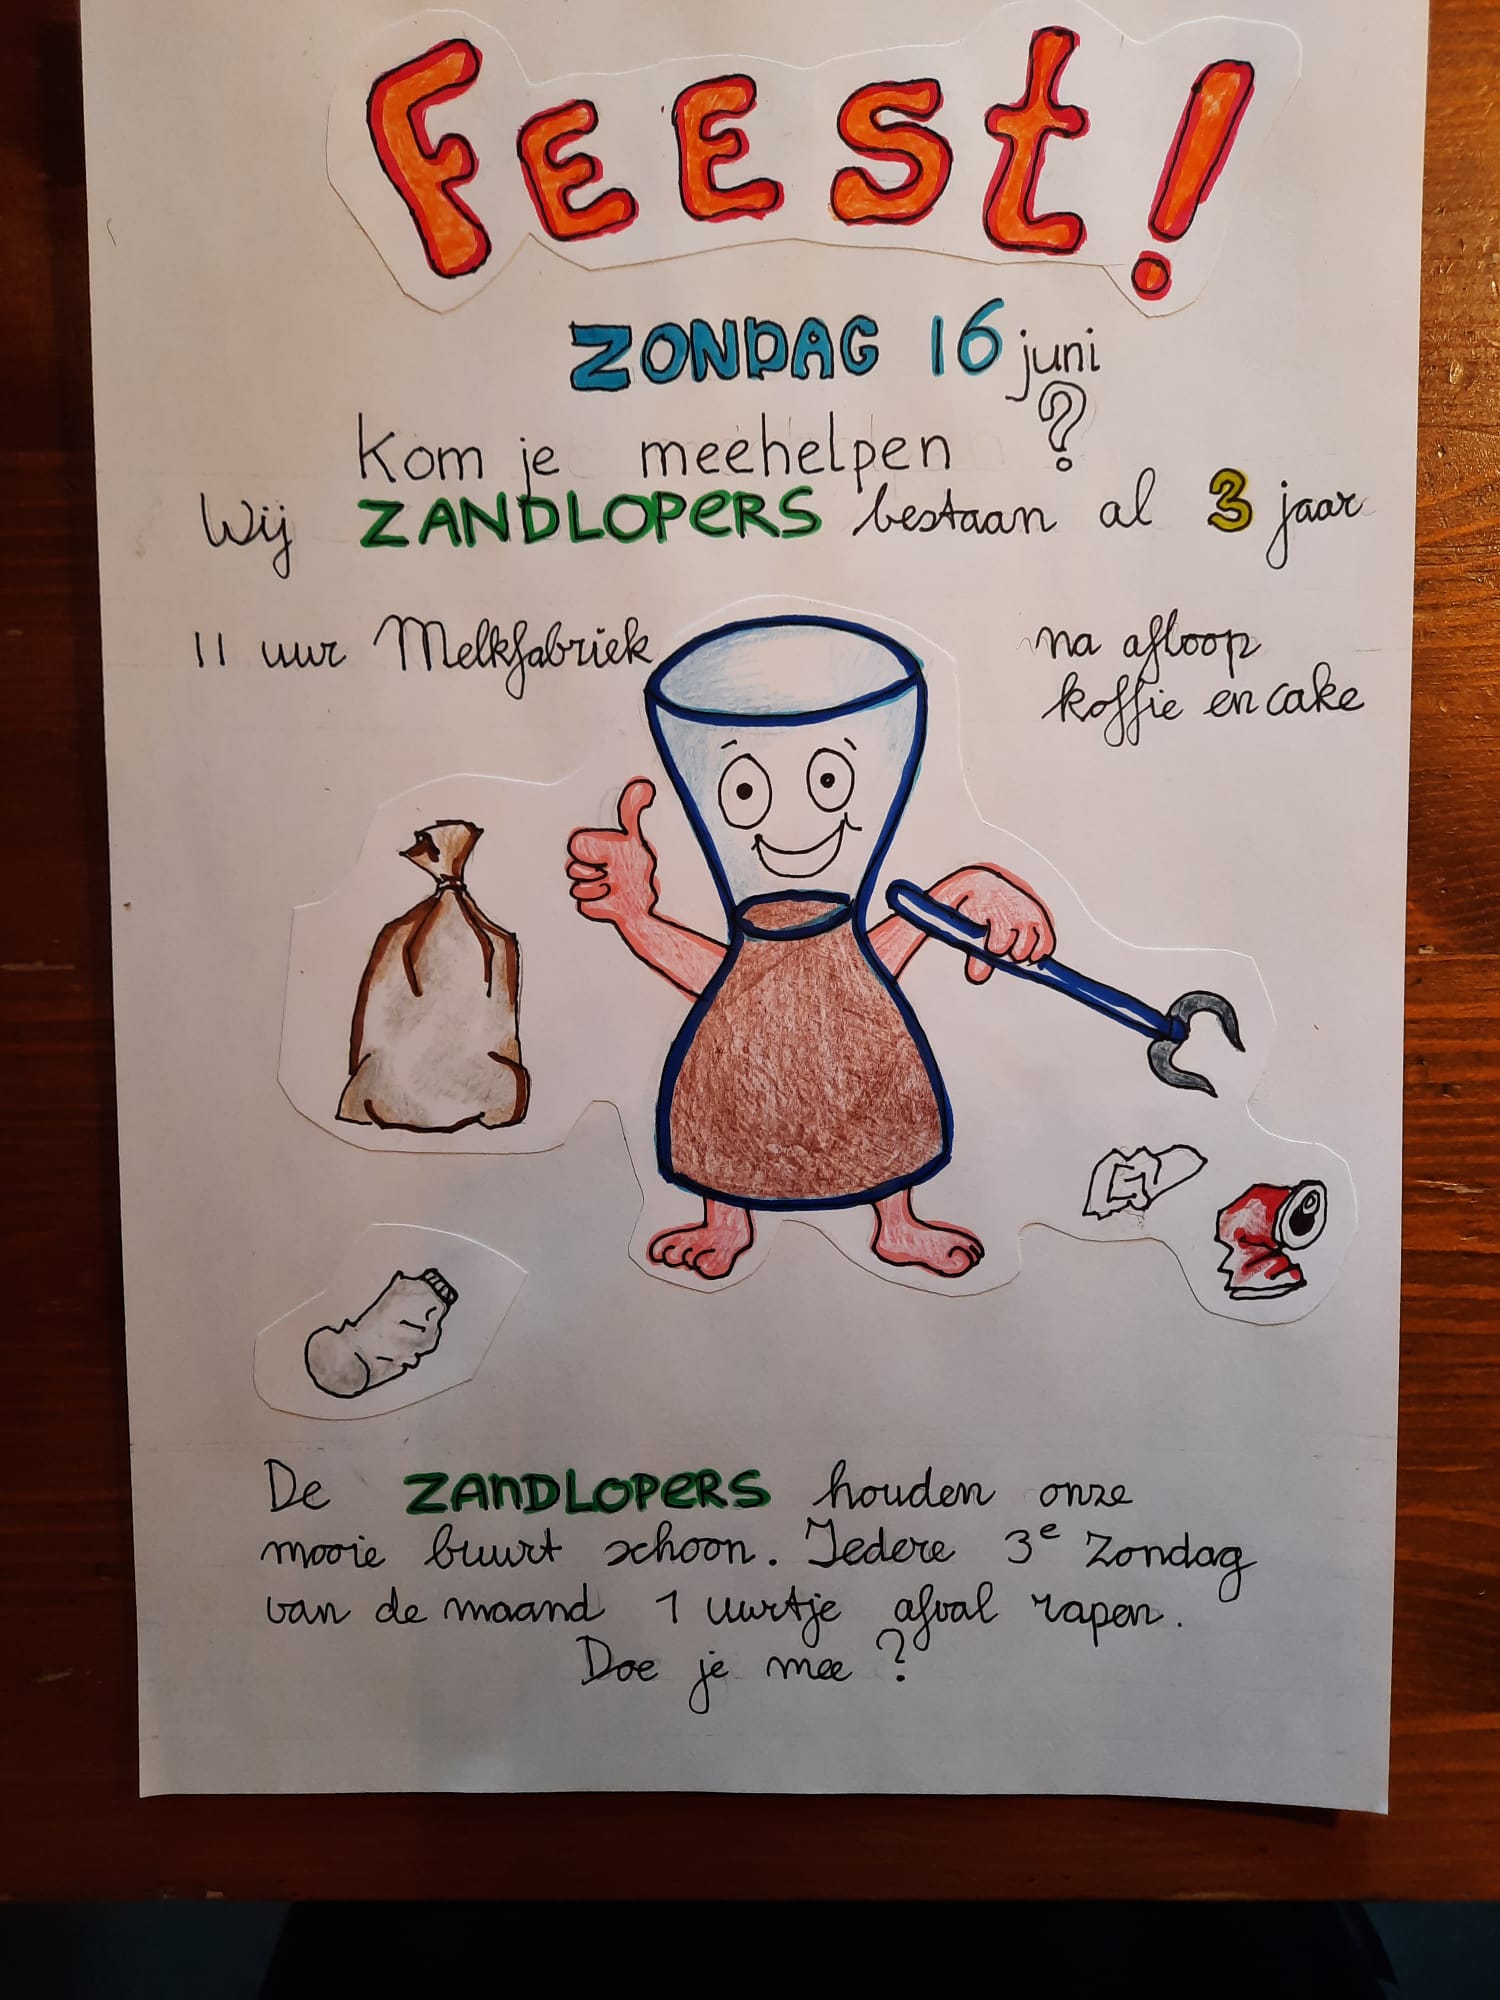 FEESt!
ZONDAG 16 juni
Kom je meehelpen ?
Wij ZANDLOPeRS bestaan al 3 jaar
11 uur Melkfabriek
na afloop
koffie en cake
De ZANDLOPeRS houden onze
mooie buurt schoon. Iedere 3e Zondag
van de maand 1 uurtje afval rapen.
Doe je mee ?